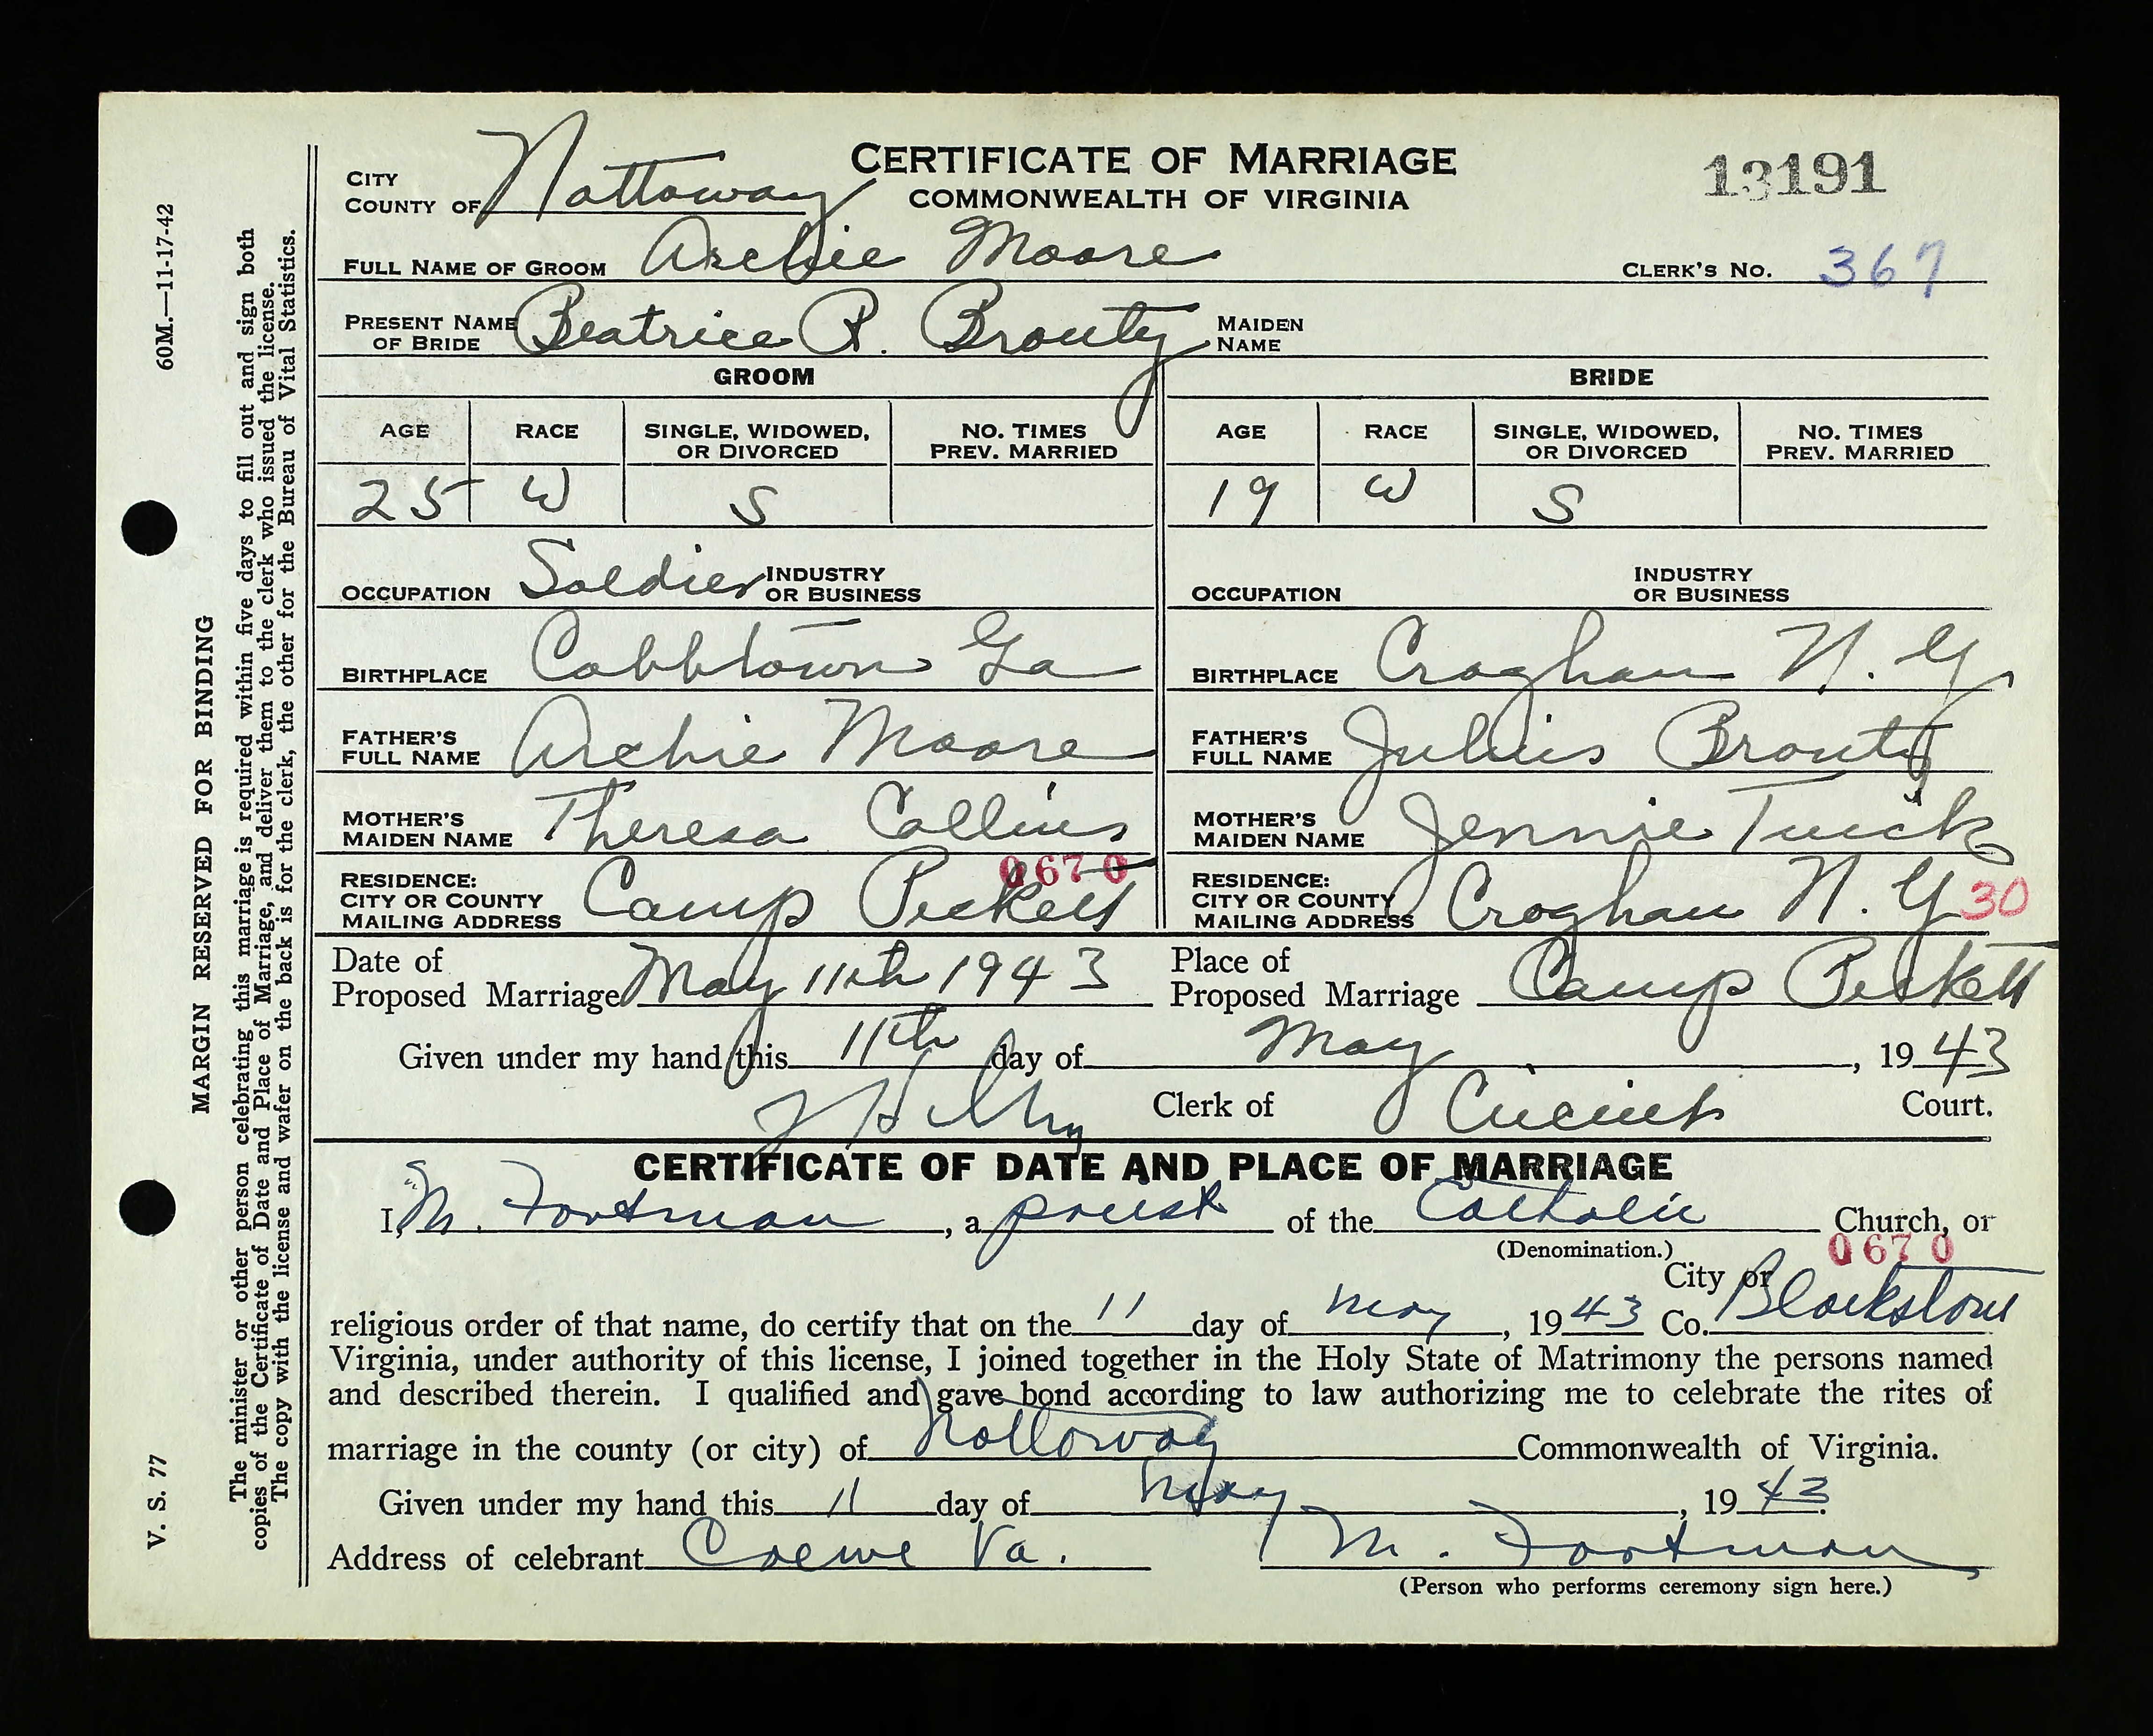 CERTIFICATE OF MARRIAGE
COMMONWEALTH OF VIRGINIA
13191
CITY
COUNTY OF Nottoway
FULL NAME OF GROOM Archie Moore
CLERK'S NO. 367
PRESENT NAME OF BRIDE Beatrice R. Brouty MAIDEN NAME
GROOM
BRIDE
AGE RACE SINGLE, WIDOWED, OR DIVORCED NO. TIMES PREV. MARRIED AGE RACE SINGLE, WIDOWED, OR DIVORCED NO. TIMES PREV. MARRIED
25 W S 19 W S
OCCUPATION Soldier INDUSTRY OR BUSINESS
OCCUPATION INDUSTRY OR BUSINESS
BIRTHPLACE Cobbtown Ga
BIRTHPLACE Croghan N.Y
FATHER'S FULL NAME Archie Moore
FATHER'S FULL NAME Julius Brouty
MOTHER'S MAIDEN NAME Theresa Collins
MOTHER'S MAIDEN NAME Jennie
0670
RESIDENCE: CITY OR COUNTY MAILING ADDRESS Camp Pickett
RESIDENCE: CITY OR COUNTY MAILING ADDRESS Croghan N.Y 30
Date of Proposed Marriage May 11th 1943
Place of Proposed Marriage Camp Pickett
Given under my hand this 11th day of May, 1943
Clerk of Circuit Court.
CERTIFICATE OF DATE AND PLACE OF MARRIAGE
I, M. Fortman, a priest of the Catholic Church, or
(Denomination.)
0670
City or
religious order of that name, do certify that on the 11 day of May, 1943 Co. Blackstone
Virginia, under authority of this license, I joined together in the Holy State of Matrimony the persons named
and described therein. I qualified and gave bond according to law authorizing me to celebrate the rites of
marriage in the county (or city) of Nottoway Commonwealth of Virginia.
Given under my hand this 11 day of May, 1943.
Address of celebrant Crewe Va. M. Fortman
(Person who performs ceremony sign here.)
60M.—11-17-42
V. S. 77
MARGIN RESERVED FOR BINDING
The minister or other person celebrating this marriage is required within five days to fill out and sign both
copies of the Certificate of Date and Place of Marriage, and deliver them to the clerk who issued the license.
The copy with the license and wafer on the back is for the clerk, the other for the Bureau of Vital Statistics.